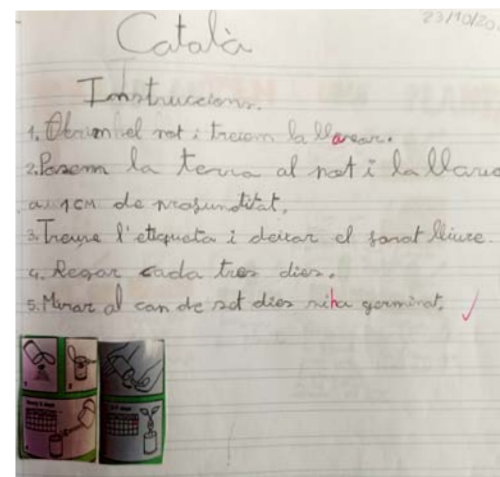 23/10/20
Català
Instruccions.
1. Obrim el pot i treiem la llavor.
2. Posem la terra al pot i la llavo
a 1CM de profunditat.
3. Treure l'etiqueta i deixar el forat lliure.
4. Regar cada tres dies.
5. Mirar al cap de set dies si ha germinat.